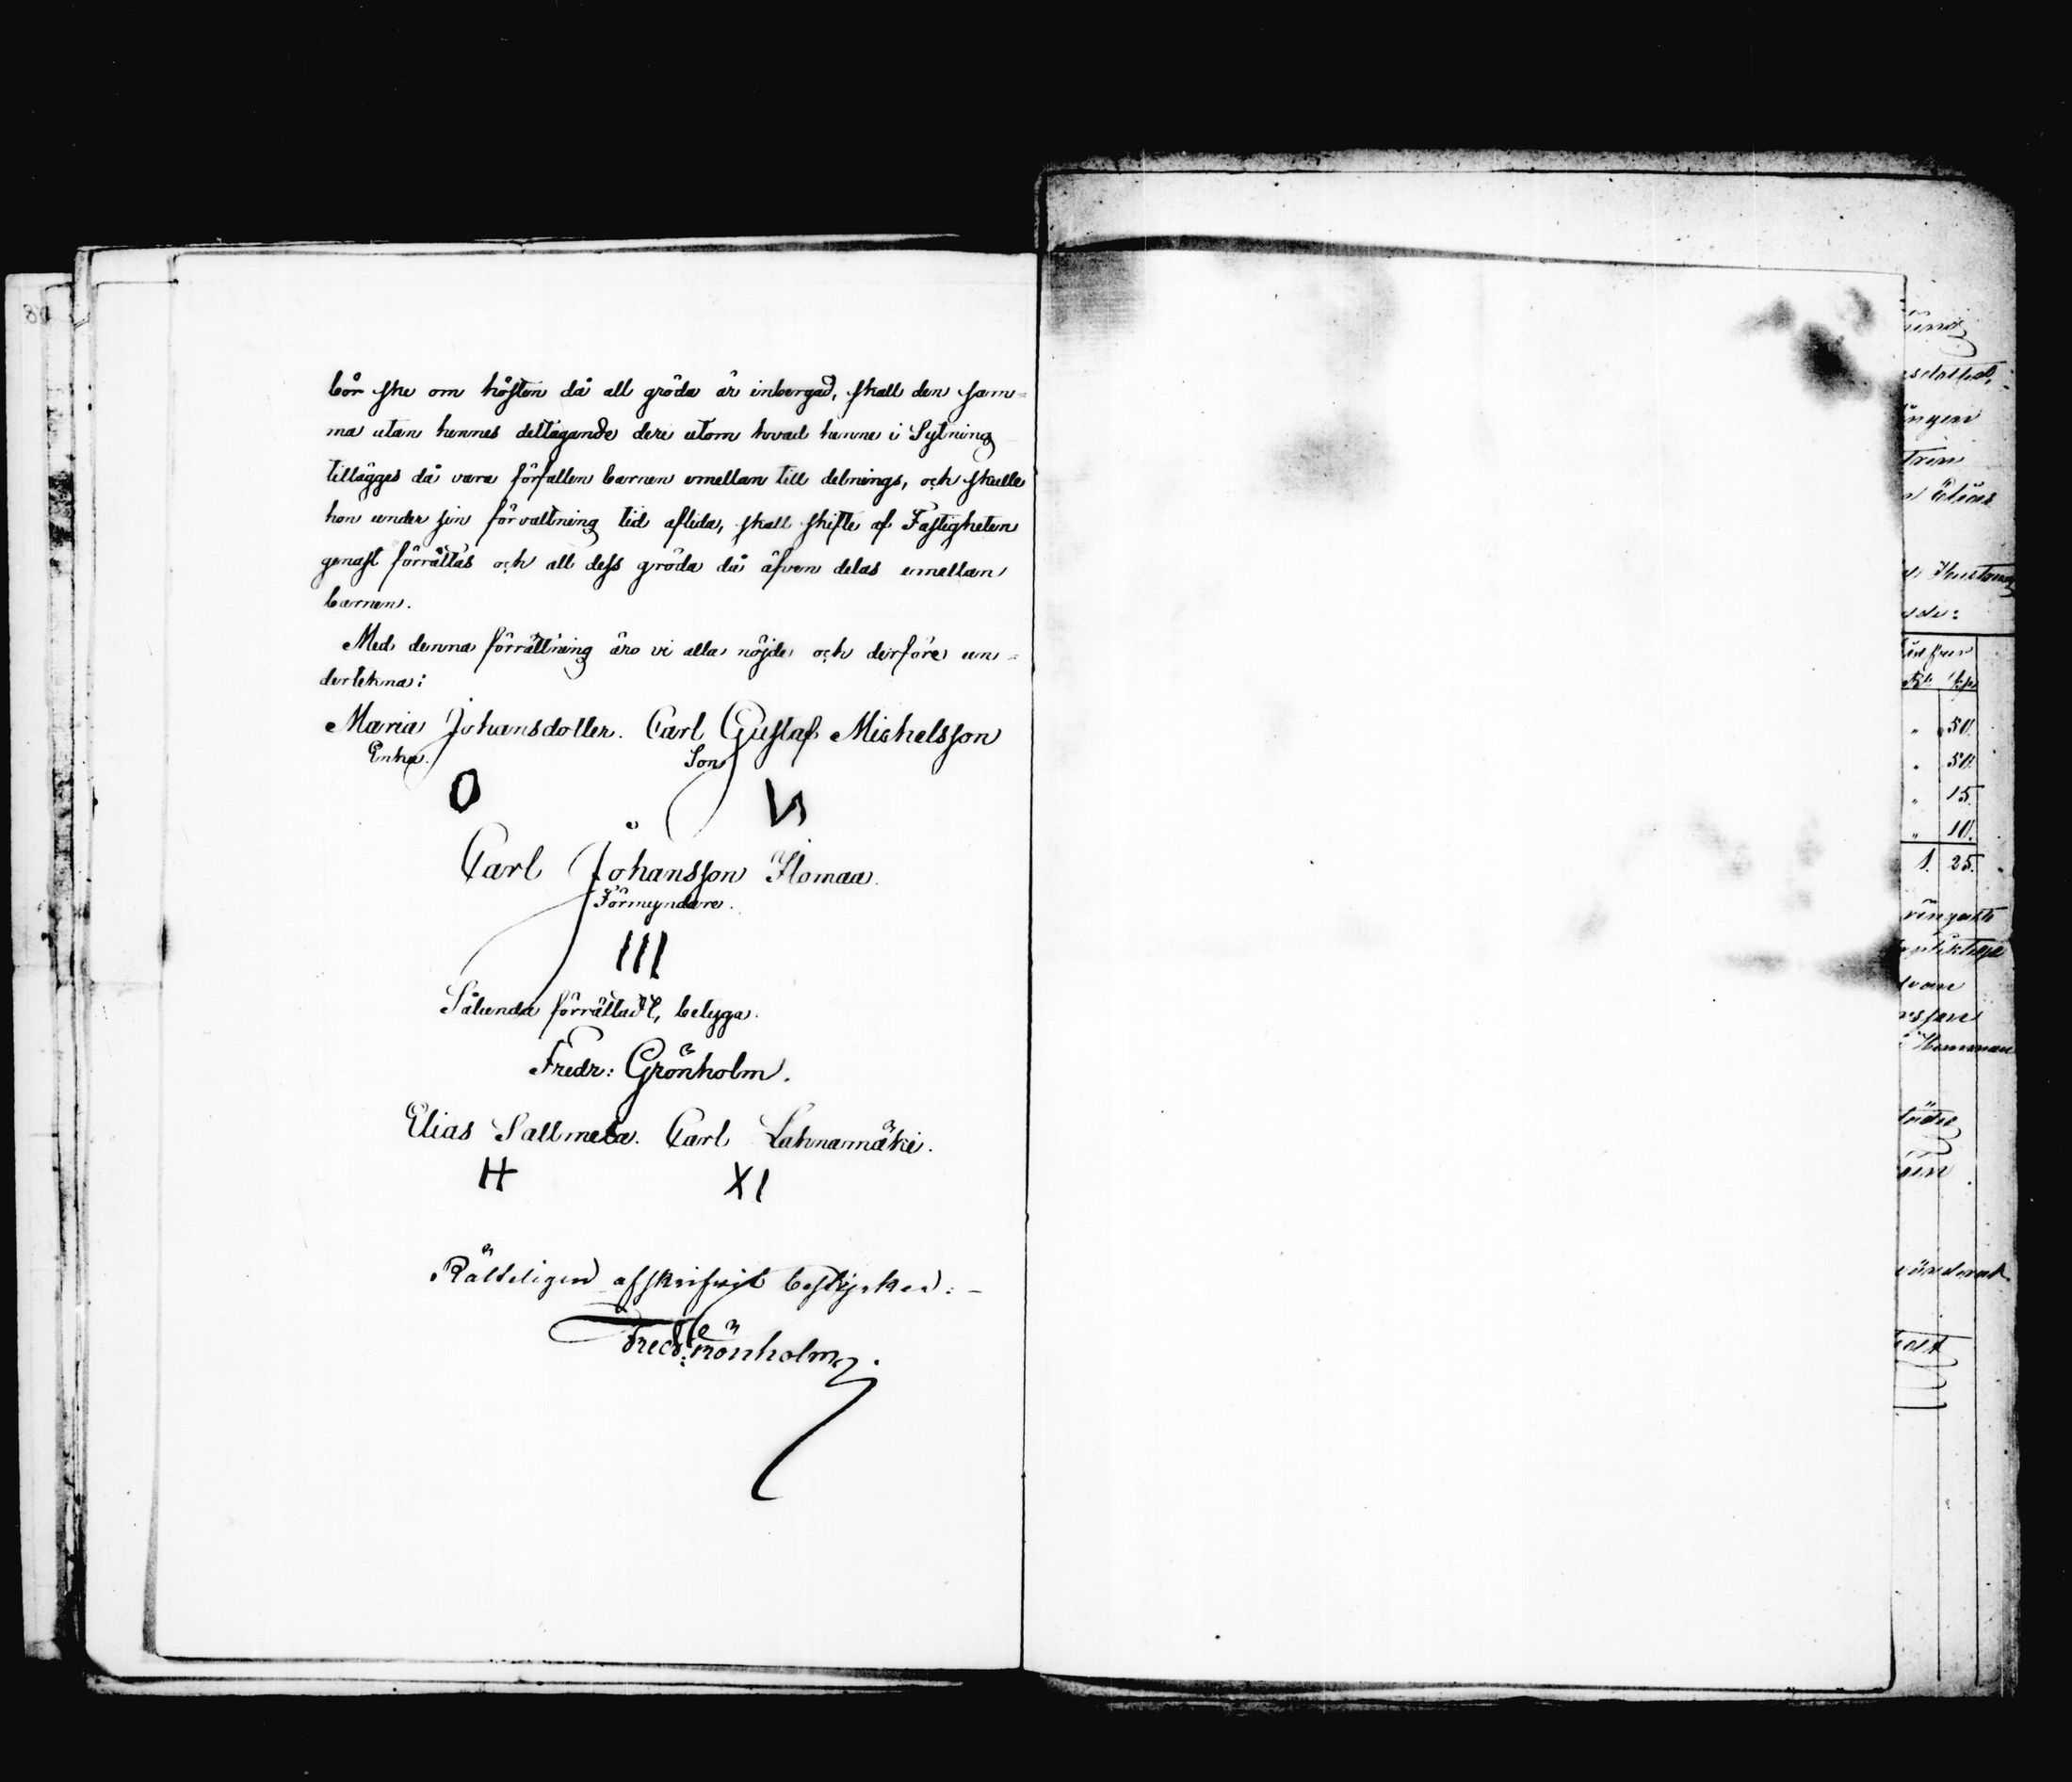 bör ske om hösten då all gröda är inbergad, skall den sam=
ma utan hennes deltagande dere utom hvad henne i Sytning
tillägges då vara förfallen barnen emellan till delnings, och skulle
hon under sin förvaltning tid aflida, skall skifte af Fastigheten
genast förrättas och all dess gröda då äfven delas emellan
barnen.
Med denna förrättning äro vi alla nöjde och derföre un=
dertekna:
Maria Johansdotter. Carl Gustaf Michelsson
Enka. Son
O VI
Carl Johansson Ilomaa.
Förmyndare.
III
Sålunda förrättadt, betyga.
Fredr: Grönholm.
Elias Sallmela. Carl Lahnamäki.
H XI
Rätteligen afskrifvit bestyrker: –
Fredr: Grönholm.
50.
50.
15.
10.
1. 25.